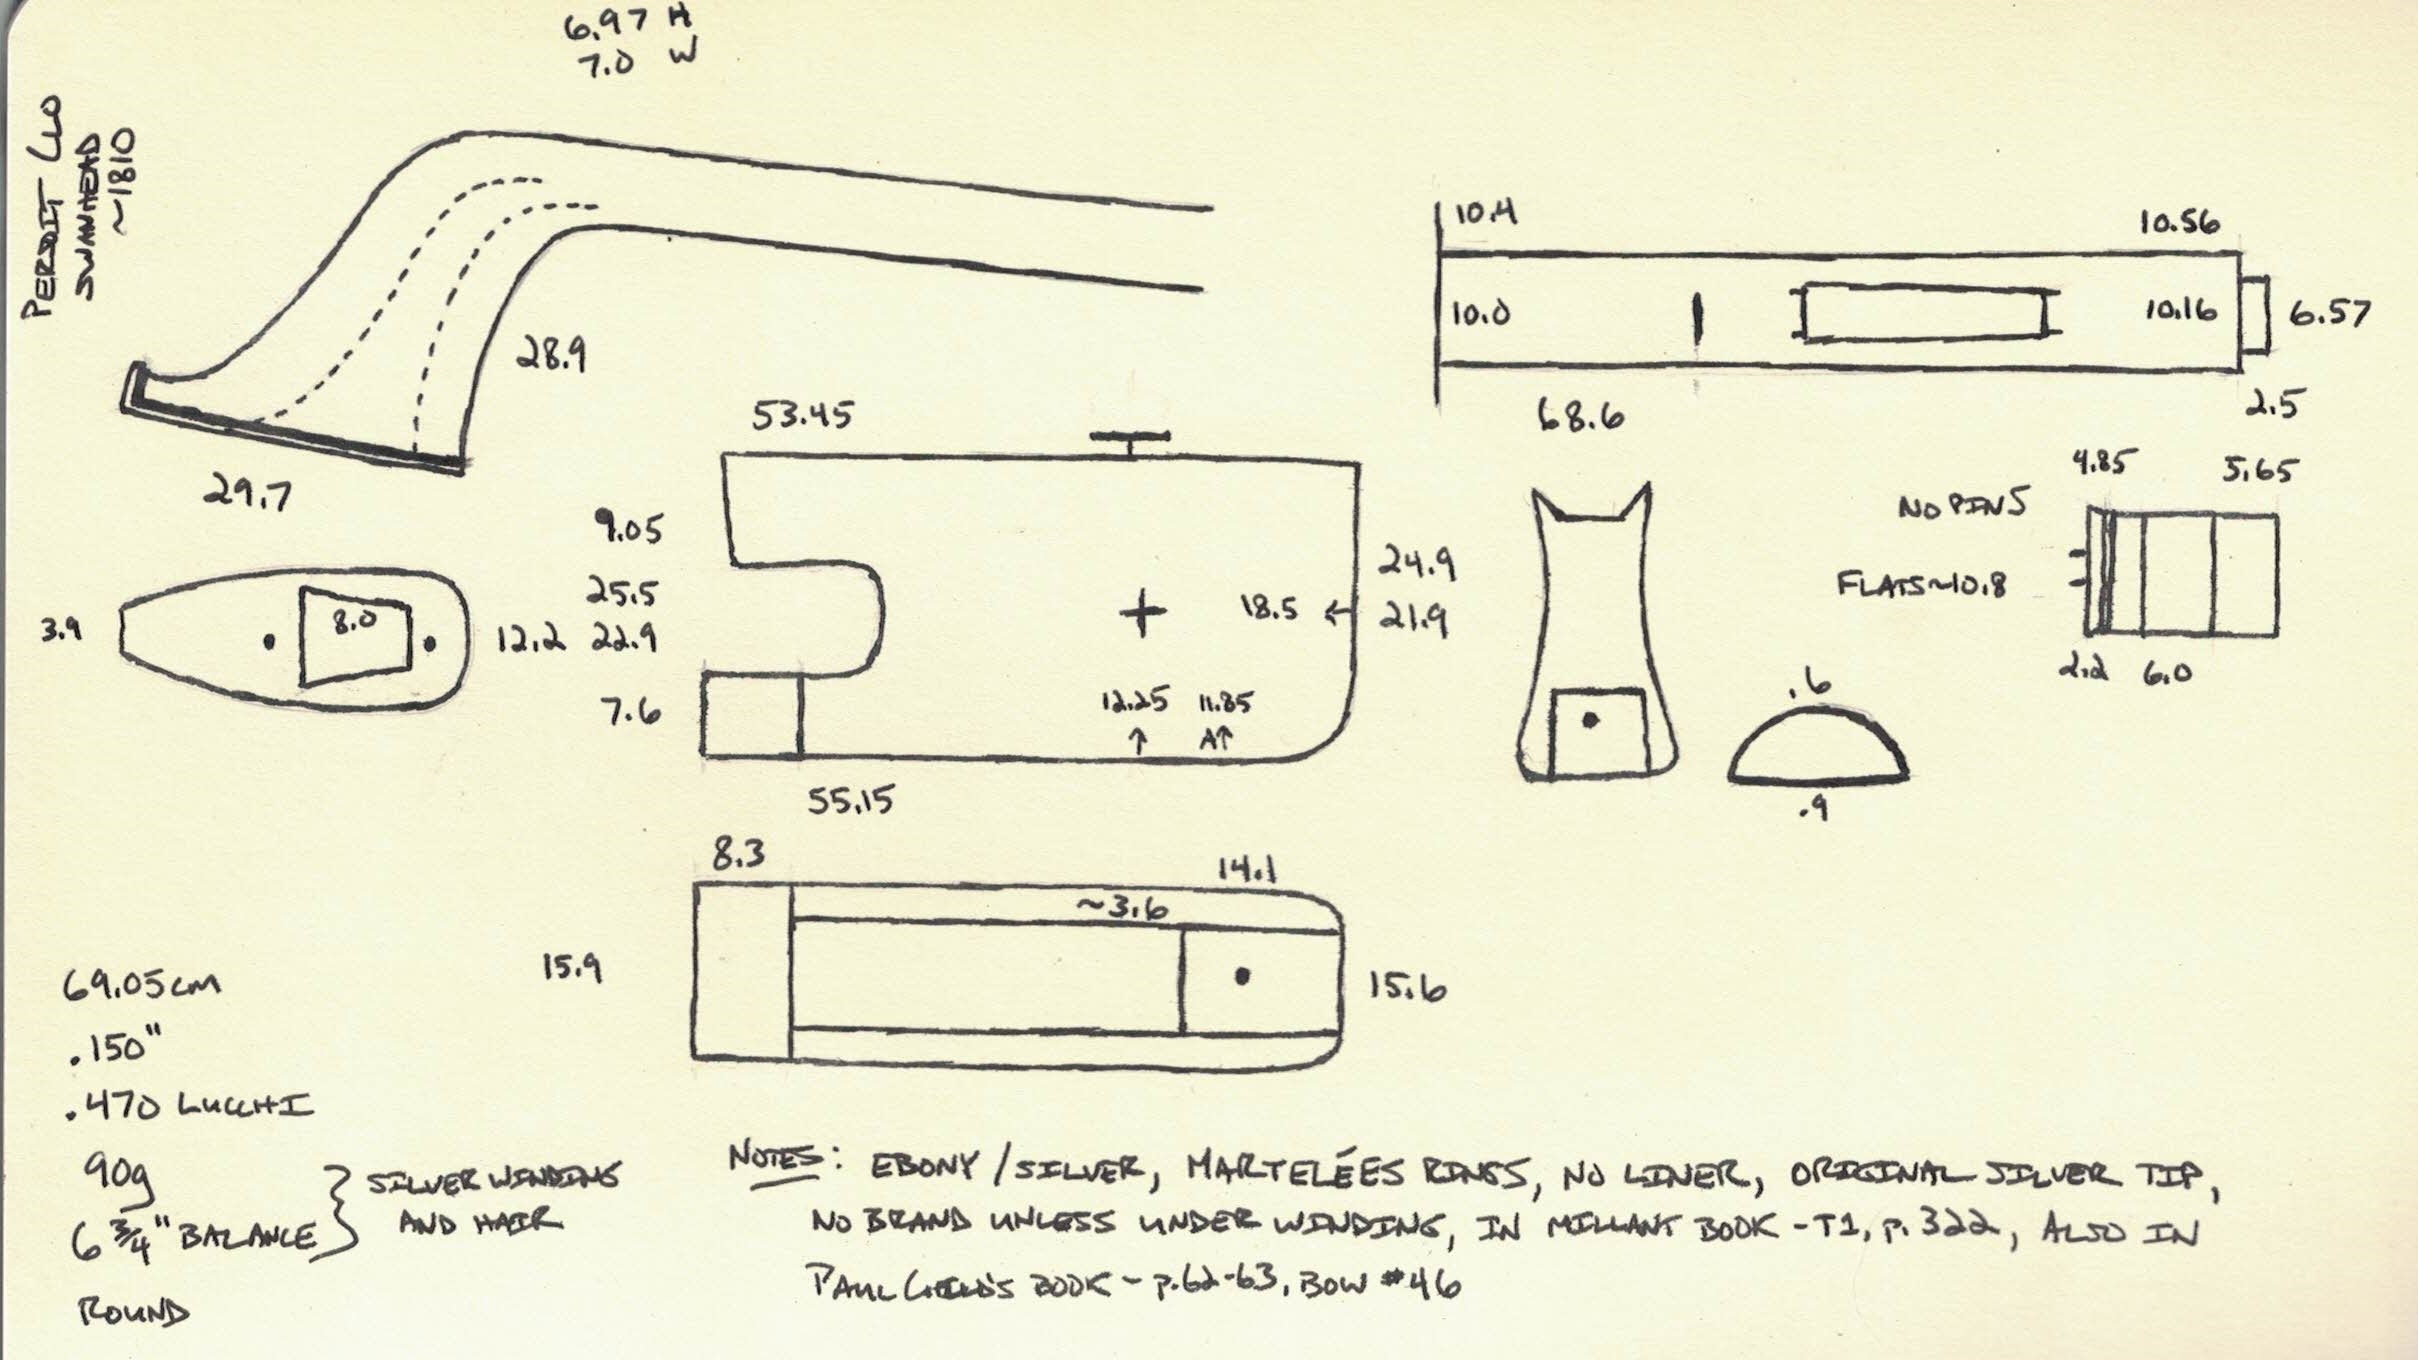 6.97 H
7.0 W
PERSOIT CLO
SWANHEAD
~1810
28.9
29.7
10.4
10.56
10.0
10.16
6.57
68.6
2.5
53.45
9.05
25.5
22.9
7.6
24.9
18.5 ←
21.9
12.25
↑
11.85
A↑
55.15
3.9
8.0
12.2
NO PINS
FLATS~10.8
4.85
5.65
2.2
6.0
.6
.9
8.3
14.1
~3.6
15.9
15.6
69.05cm
.150"
.470 LUCCHI
90g
6 3/4" BALANCE
SILVER WINDING
AND HAIR
ROUND
NOTES: EBONY/SILVER, MARTELÉES RINGS, NO LINER, ORIGINAL SILVER TIP,
NO BRAND UNLESS UNDER WINDING, IN MILLANT BOOK - T1, p. 322, ALSO IN
PAUL CHILD'S BOOK - p.62-63, BOW #46